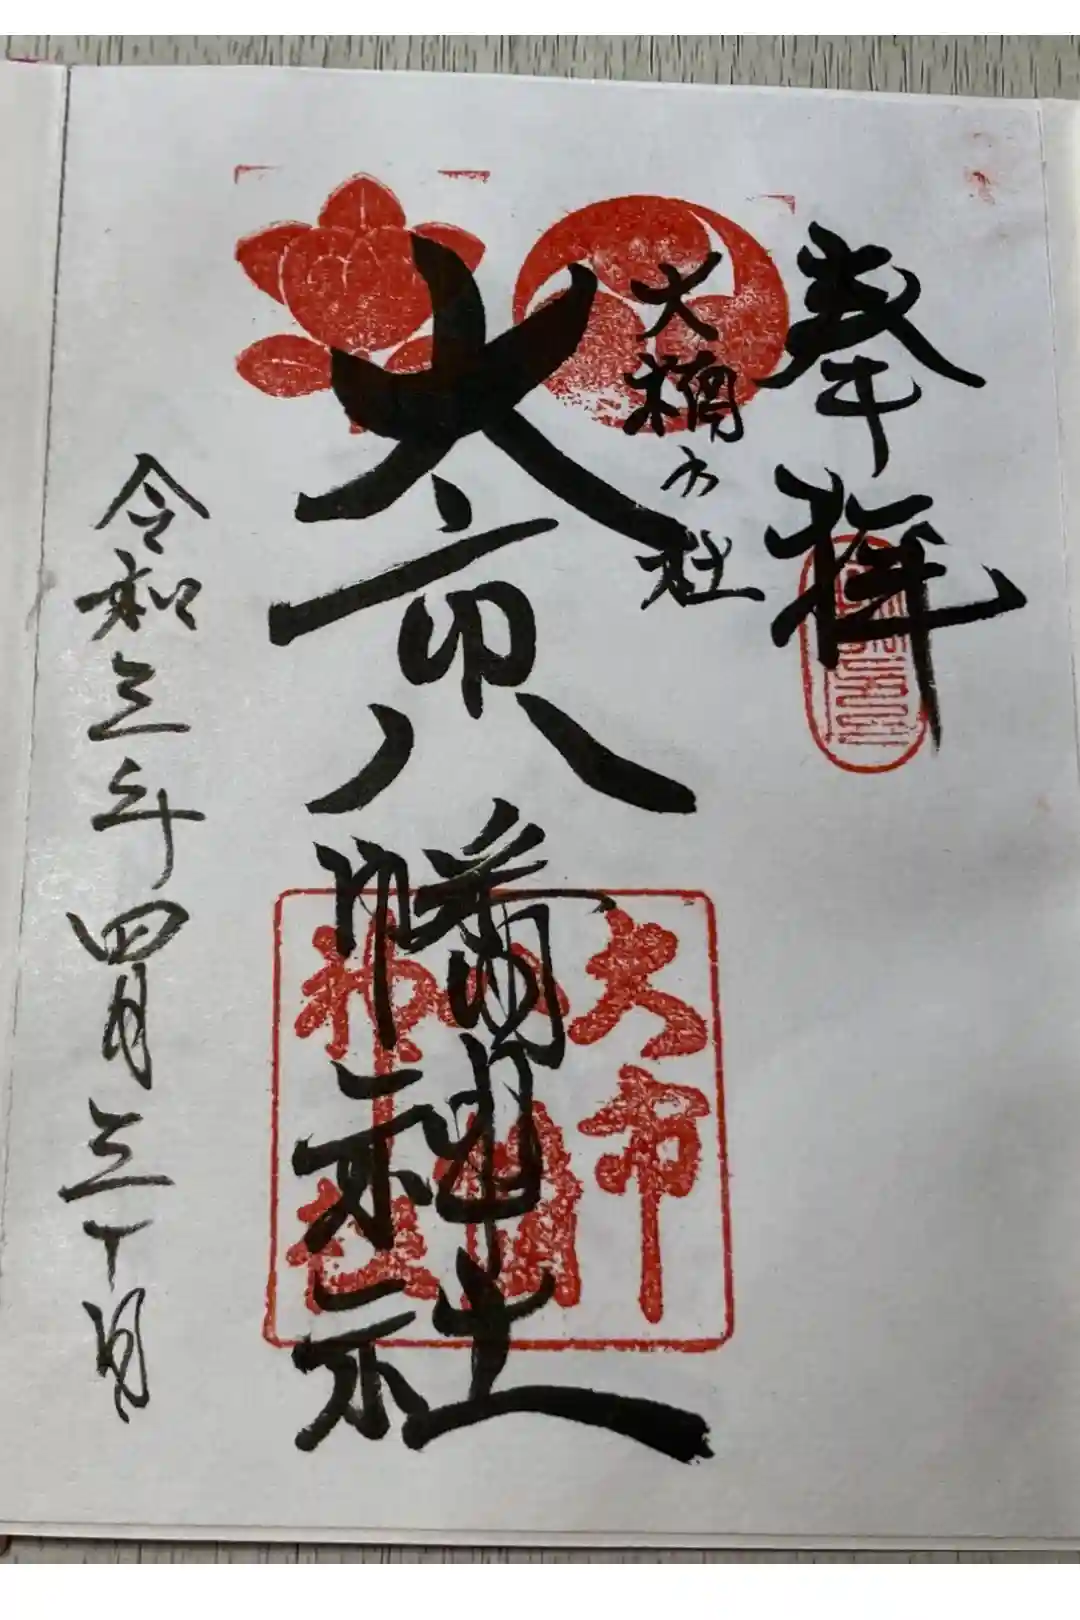 奉拝
大楠乃社
大市八幡神社
令和三年四月三十日
大市
八幡
神社